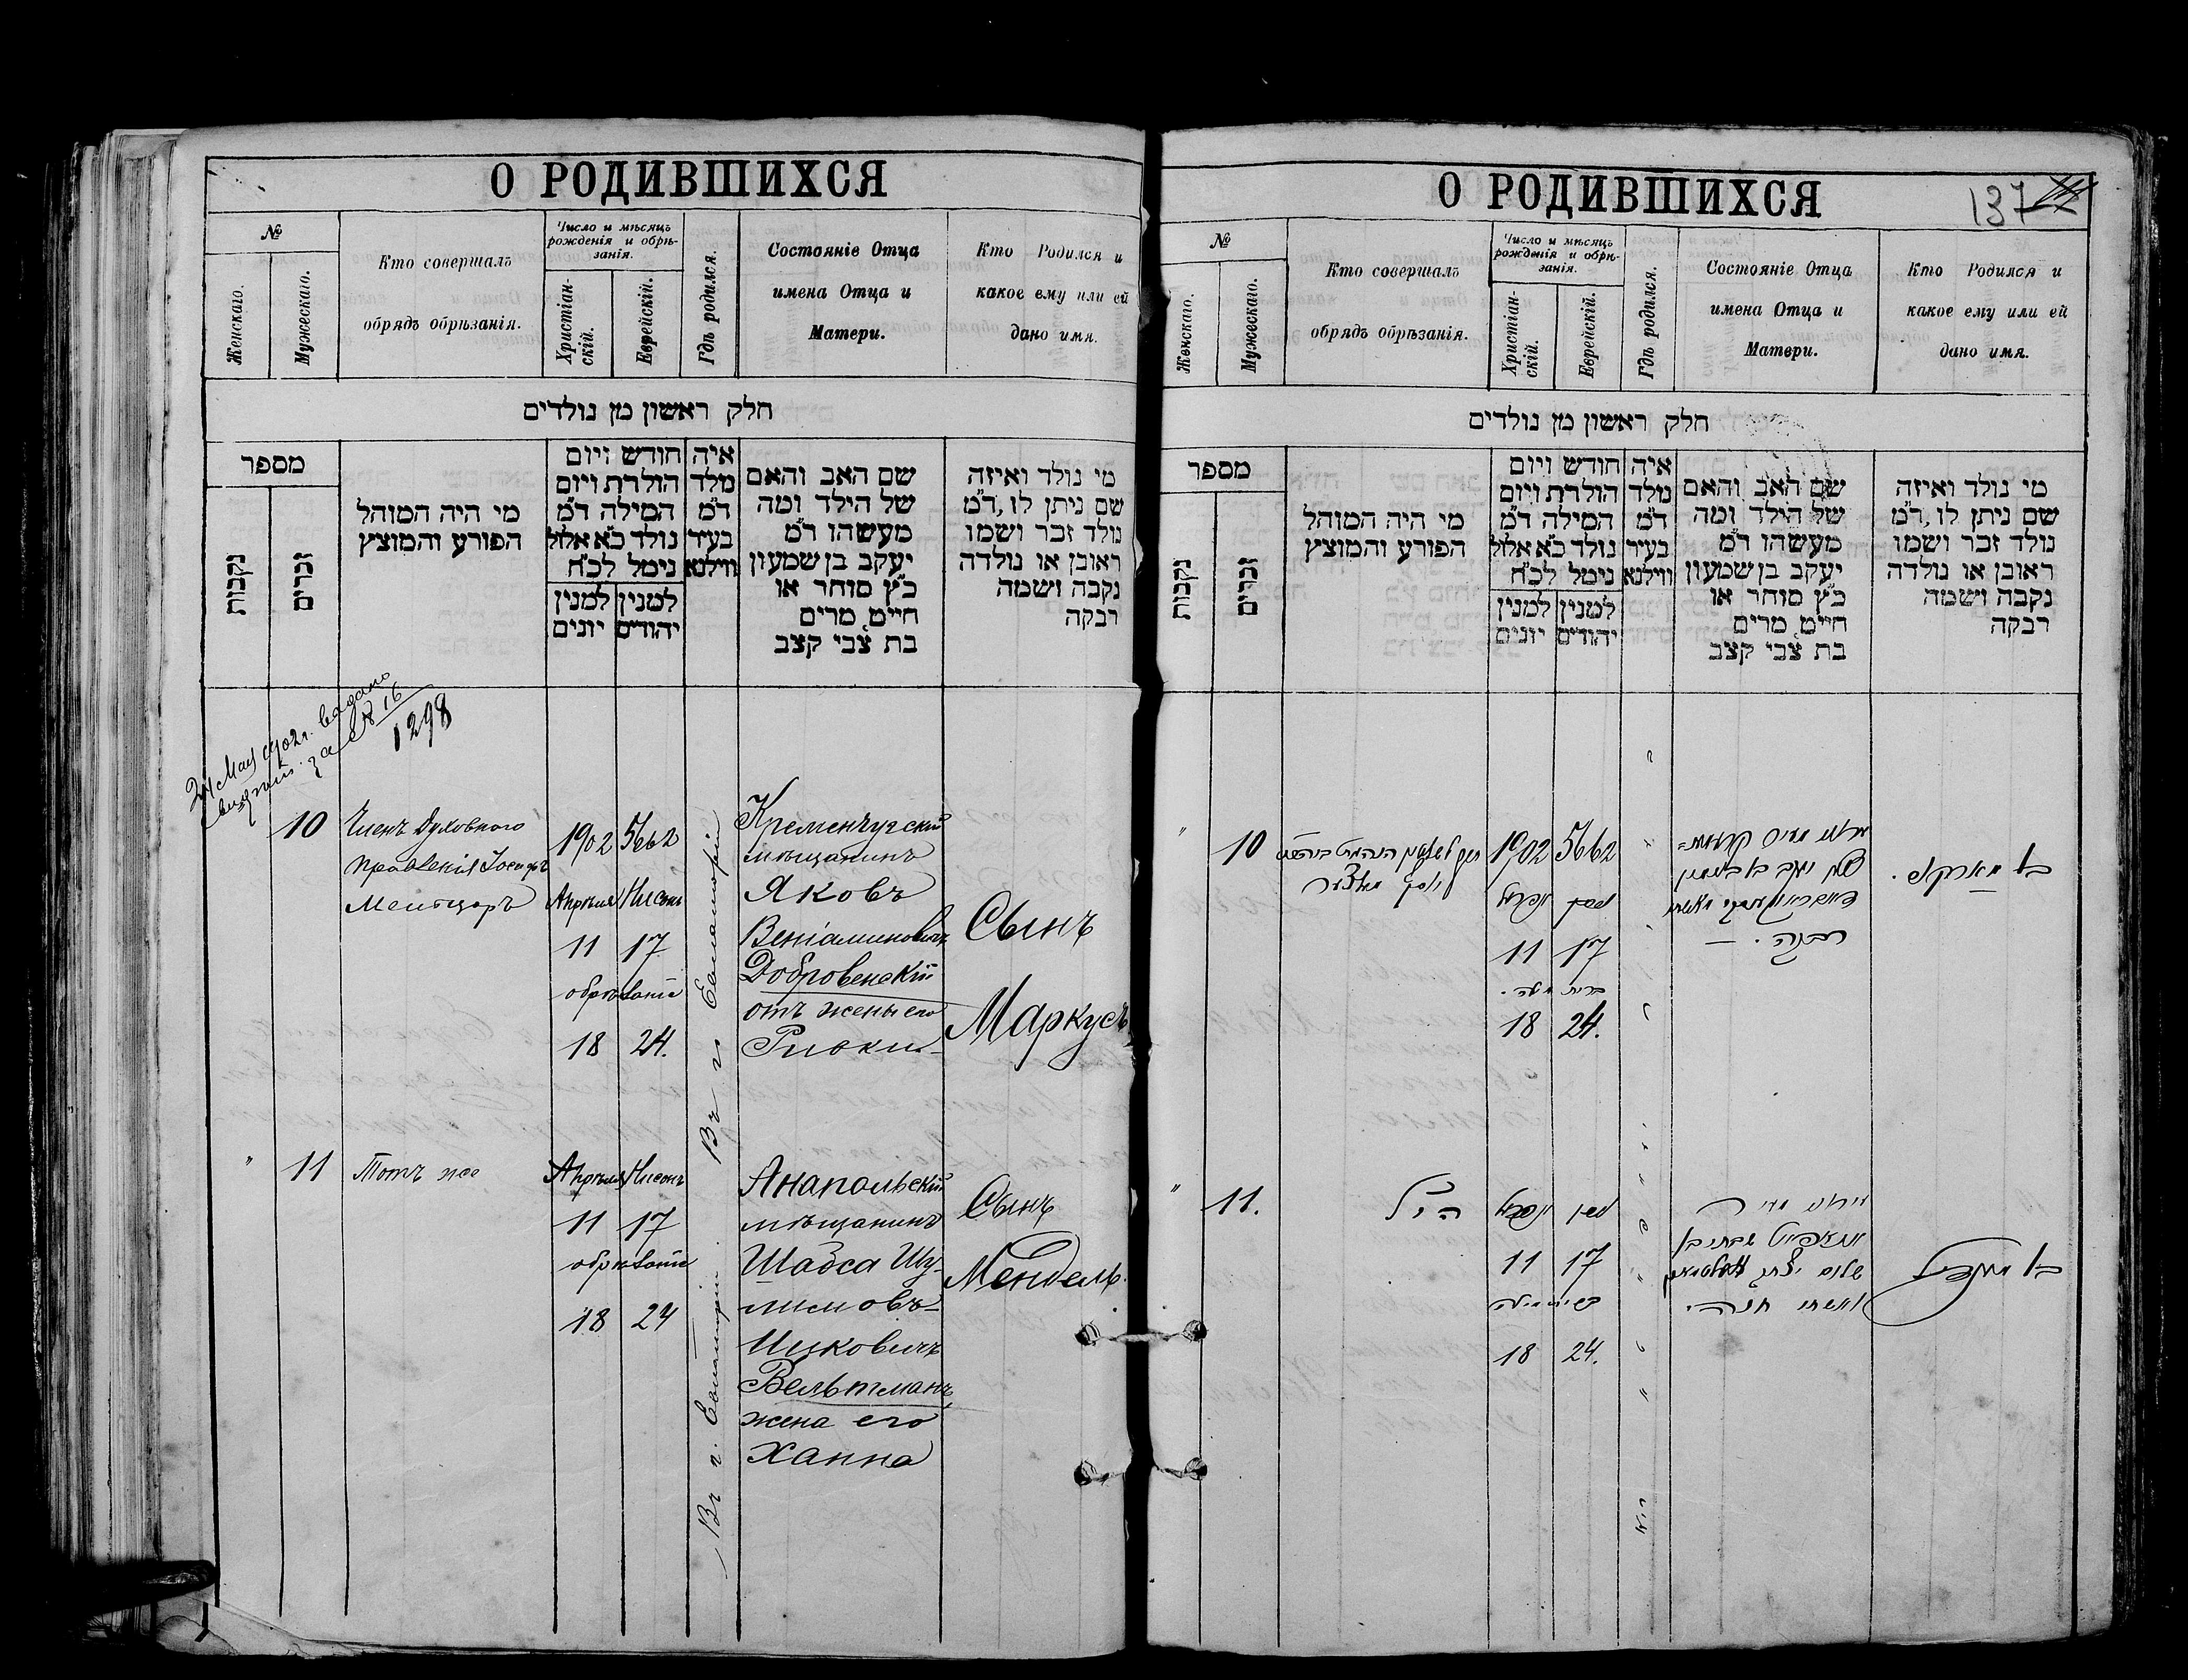 О РОДИВШИХСЯ
№
Женскаго.
Мужескаго.
Кто совершалъ
обрядъ обрѣзанія.
Число и мѣсяцъ
рожденія и обрѣ-
занія.
Христіан-
скій.
Еврейскій.
Гдѣ родился.
Состояніе Отца
имена Отца и
Матери.
Кто Родился и
какое ему или ей
дано имя.
חלק ראשון מן נולדים
מספר
נקבות
זכרים
מי היה המוהל
הפורע והמוצץ
חודש ויום
הולדת ויום
המילה ד״מ
נולד כ״א אלול
נימל לכ״ח
למנין יהודים
למנין יונים
איה
מלד
ד״מ
בעיר
ווילנא
שם האב והאם
של הילד ומה
מעשהו ד״מ
יעקב בן שמעון
כ״ץ סוחר או
חייט, מרים
בת צבי קצב
מי נולד ואיזה
שם ניתן לו, ד״מ
נולד זכר ושמו
ראובן או נולדה
נקבה ושמה
רבקה
24 Мая 1902 г. выдано
за № 16
1298
10
Членъ Духовнаго
Правленія Іосифъ
Менцеръ
1902 5662
Апрѣля Нисонъ
11 17
обрѣзаніе
18 24.
Въ г. Евпаторіи
Кременчугскій
мѣщанинъ
Яковъ
Веніаминовичъ
Добровенскій
отъ жены его
Ривки
Сынъ
Маркусъ
" 11
Тотъ же
Апрѣля Нисонъ
11 17
обрѣзаніе
18 24
Въ г. Евпаторіи
Анапольскій
мѣщанинъ
Шабса Шу-
лимовъ-
Ицковичъ
Вельтманъ
жена его
Ханна
Сынъ
Мендель.
О РОДИВШИХСЯ
137
№
Женскаго.
Мужескаго.
Кто совершалъ
обрядъ обрѣзанія.
Число и мѣсяцъ
рожденія и обрѣ-
занія.
Христіан-
скій.
Еврейскій.
Гдѣ родился.
Состояніе Отца
имена Отца и
Матери.
Кто Родился и
какое ему или ей
дано имя.
חלק ראשון מן נולדים
מספר
נקבות
זכרים
מי היה המוהל
הפורע והמוצץ
חודש ויום
הולדת ויום
המילה ד״מ
נולד כ״א אלול
נימל לכ״ח
למנין יהודים
למנין יונים
איה
מלד
ד״מ
בעיר
ווילנא
שם האב והאם
של הילד ומה
מעשהו ד״מ
יעקב בן שמעון
כ״ץ סוחר או
חייט, מרים
בת צבי קצב
מי נולד ואיזה
שם ניתן לו, ד״מ
נולד זכר ושמו
ראובן או נולדה
נקבה ושמה
רבקה
" 10
1902 5662
אפריל ניסן
11 17
ברית מילה
18 24.
רבקה
בן
" 11.
הנ״ל
אפריל ניסן
11 17
מילה
18 24.
שבתי בן
שלום יצחק
ואשתו חנה
בן מענדיל